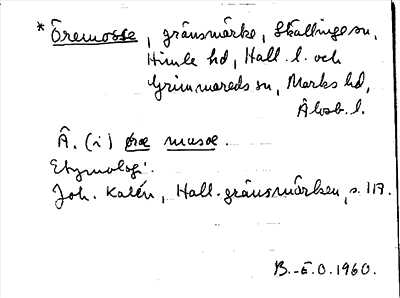 * Öremosse, gränsmärke, Skällinge sn,
Himle hd, Hall. l. och
Grimmareds sn, Marks hd,
Älvsb. l.
Ä. (i) øræ mosæ.
Etymologi.
Joh. Kalén, Hall. gränsmärken, s. 117.
B.-E.O. 1960.